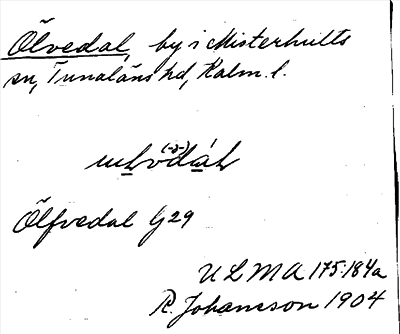 Ölvedal, by i Misterhults
sn, Tunaläns hd, Kalm. l.
(-ə-)
Ölfvedal G 29
ULMA 175:184a
R. Johansson 1904